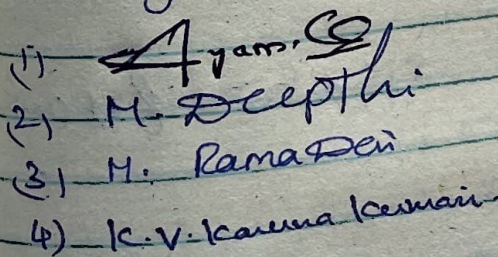 (1) Ayam.
(2) M. Deepthi
(3) M. Rama Devi
4) K.V. Karuna Kumari